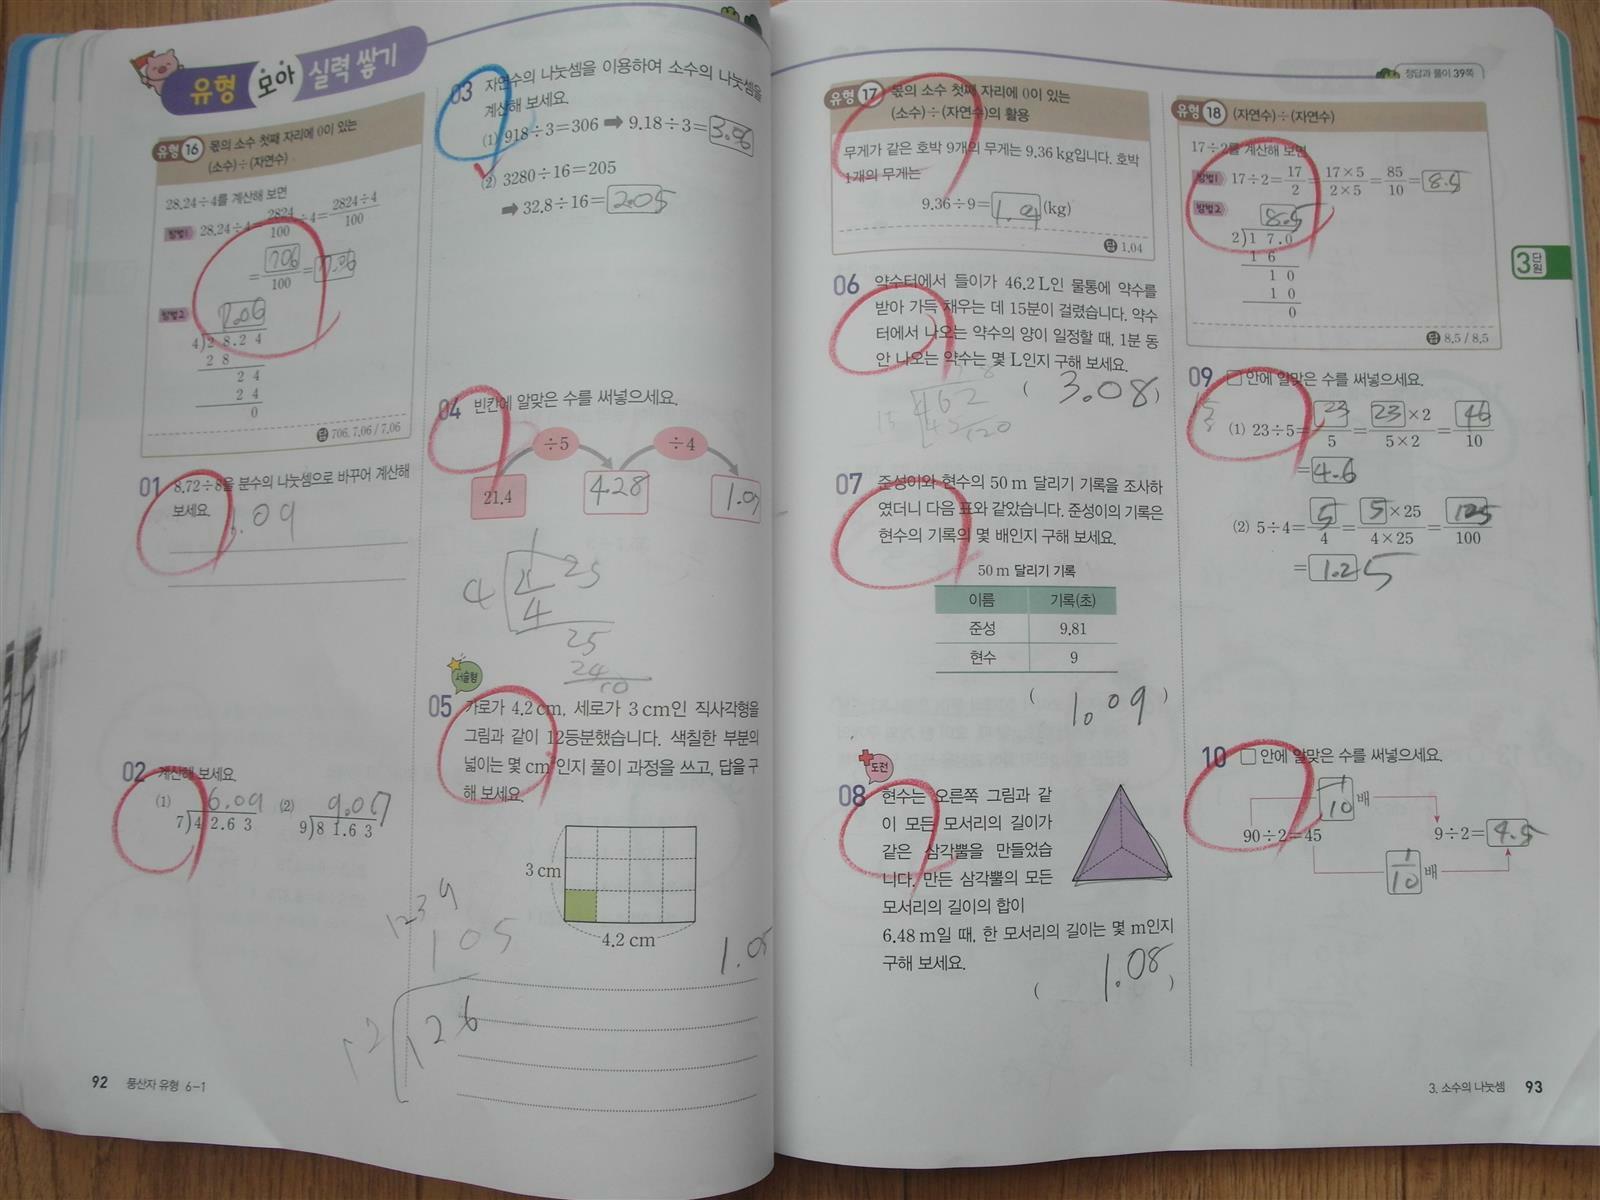 유형 모아 실력 쌓기
유형 16 몫의 소수 첫째 자리에 0이 있는
(소수)÷(자연수)
28.24÷4를 계산해 보면
방법1 28.24÷4=2824/100÷4=2824÷4/100
=706/100=7.06
방법2
7.06
4)28.24
28
24
24
0
답 706, 7.06 / 7.06
01 8.72÷8을 분수의 나눗셈으로 바꾸어 계산해
보세요.
.09
02 계산해 보세요.
(1) 6.09 (2) 9.07
7)42.63 9)81.63
03 자연수의 나눗셈을 이용하여 소수의 나눗셈을
계산해 보세요.
(1) 918÷3=306 ➡ 9.18÷3=3.06
(2) 3280÷16=205
➡ 32.8÷16=2.05
04 빈칸에 알맞은 수를 써넣으세요.
÷5 ÷4
21.4 4.28 1.07
4
25
24
10
서술형
05 가로가 4.2 cm, 세로가 3 cm인 직사각형을
그림과 같이 12등분했습니다. 색칠한 부분의
넓이는 몇 cm²인지 풀이 과정을 쓰고, 답을 구
해 보세요.
3 cm
4.2 cm
1239
105
1.05
12 126
92 풍산자 유형 6-1
정답과 풀이 39쪽
유형 17 몫의 소수 첫째 자리에 0이 있는
(소수)÷(자연수)의 활용
무게가 같은 호박 9개의 무게는 9.36 kg입니다. 호박
1개의 무게는
9.36÷9= (kg)
답 1.04
06 약수터에서 들이가 46.2 L인 물통에 약수를
받아 가득 채우는 데 15분이 걸렸습니다. 약수
터에서 나오는 약수의 양이 일정할 때, 1분 동
안 나오는 약수는 몇 L인지 구해 보세요.
( 3.08 )
15 462
45
120
07 준성이와 현수의 50 m 달리기 기록을 조사하
였더니 다음 표와 같았습니다. 준성이의 기록은
현수의 기록의 몇 배인지 구해 보세요.
50 m 달리기 기록
이름 기록(초)
준성 9.81
현수 9
( 1.09 )
도전
08 현수는 오른쪽 그림과 같
이 모든 모서리의 길이가
같은 삼각뿔을 만들었습
니다. 만든 삼각뿔의 모든
모서리의 길이의 합이
6.48 m일 때, 한 모서리의 길이는 몇 m인지
구해 보세요.
( 1.08 )
유형 18 (자연수)÷(자연수)
17÷2를 계산해 보면
방법1 17÷2=17/2=17×5/2×5=85/10=8.5
방법2
8.5
2)17.0
16
10
10
0
답 8.5 / 8.5
3단원
09 □ 안에 알맞은 수를 써넣으세요.
(1) 23÷5=23/5=23×2/5×2=46/10
=4.6
(2) 5÷4=5/4=5×25/4×25=125/100
=1.25
10 □ 안에 알맞은 수를 써넣으세요.
1/10배
90÷2=45 9÷2=4.5
1/10배
3. 소수의 나눗셈 93